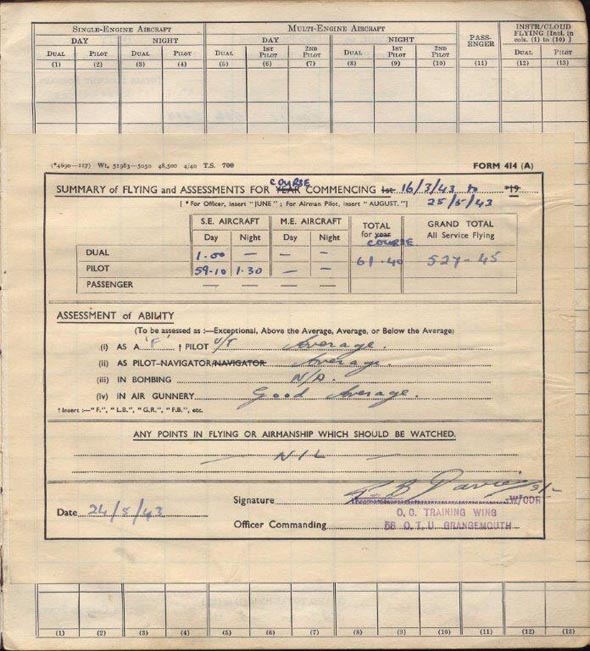 SINGLE-ENGINE AIRCRAFT MULTI-ENGINE AIRCRAFT PASS-ENGER INSTR/CLOUD FLYING [Incl. in cols. (1) to (10)]
DAY NIGHT DAY NIGHT
DUAL PILOT DUAL PILOT DUAL 1ST PILOT 2ND PILOT DUAL 1ST PILOT 2ND PILOT DUAL PILOT
(1) (2) (3) (4) (5) (6) (7) (8) (9) (10) (11) (12) (13)
(*4690—217) Wt. 52983—5050 48,500 4/40 T.S. 700 FORM 414 (A)
COURSE
SUMMARY of FLYING and ASSESSMENTS FOR YEAR COMMENCING 1st 16/3/43 to *19
[*For Officer, insert "JUNE"; For Airman Pilot, insert "AUGUST."] 25/5/43
S.E. AIRCRAFT M.E. AIRCRAFT TOTAL for year COURSE GRAND TOTAL All Service Flying
Day Night Day Night
DUAL 1.00 — — —
PILOT 59.10 1.30 — — 61.40 527-45
PASSENGER — — — —
ASSESSMENT of ABILITY
(To be assessed as :—Exceptional, Above the Average, Average, or Below the Average)
(i) AS A "F" † PILOT U/T Average.
(ii) AS PILOT-NAVIGATOR/NAVIGATOR Average.
(iii) IN BOMBING N/A.
(iv) IN AIR GUNNERY Good Average.
† Insert :—"F.", "L.B.", "G.R.", "F.B.", etc.
ANY POINTS IN FLYING OR AIRMANSHIP WHICH SHOULD BE WATCHED.
— NIL —
Signature Davies W/CDR
Date 24/5/43 O.C. TRAINING WING
Officer Commanding 58 O.T.U GRANGEMOUTH
(1) (2) (3) (4) (5) (6) (7) (8) (9) (10) (11) (12) (13)